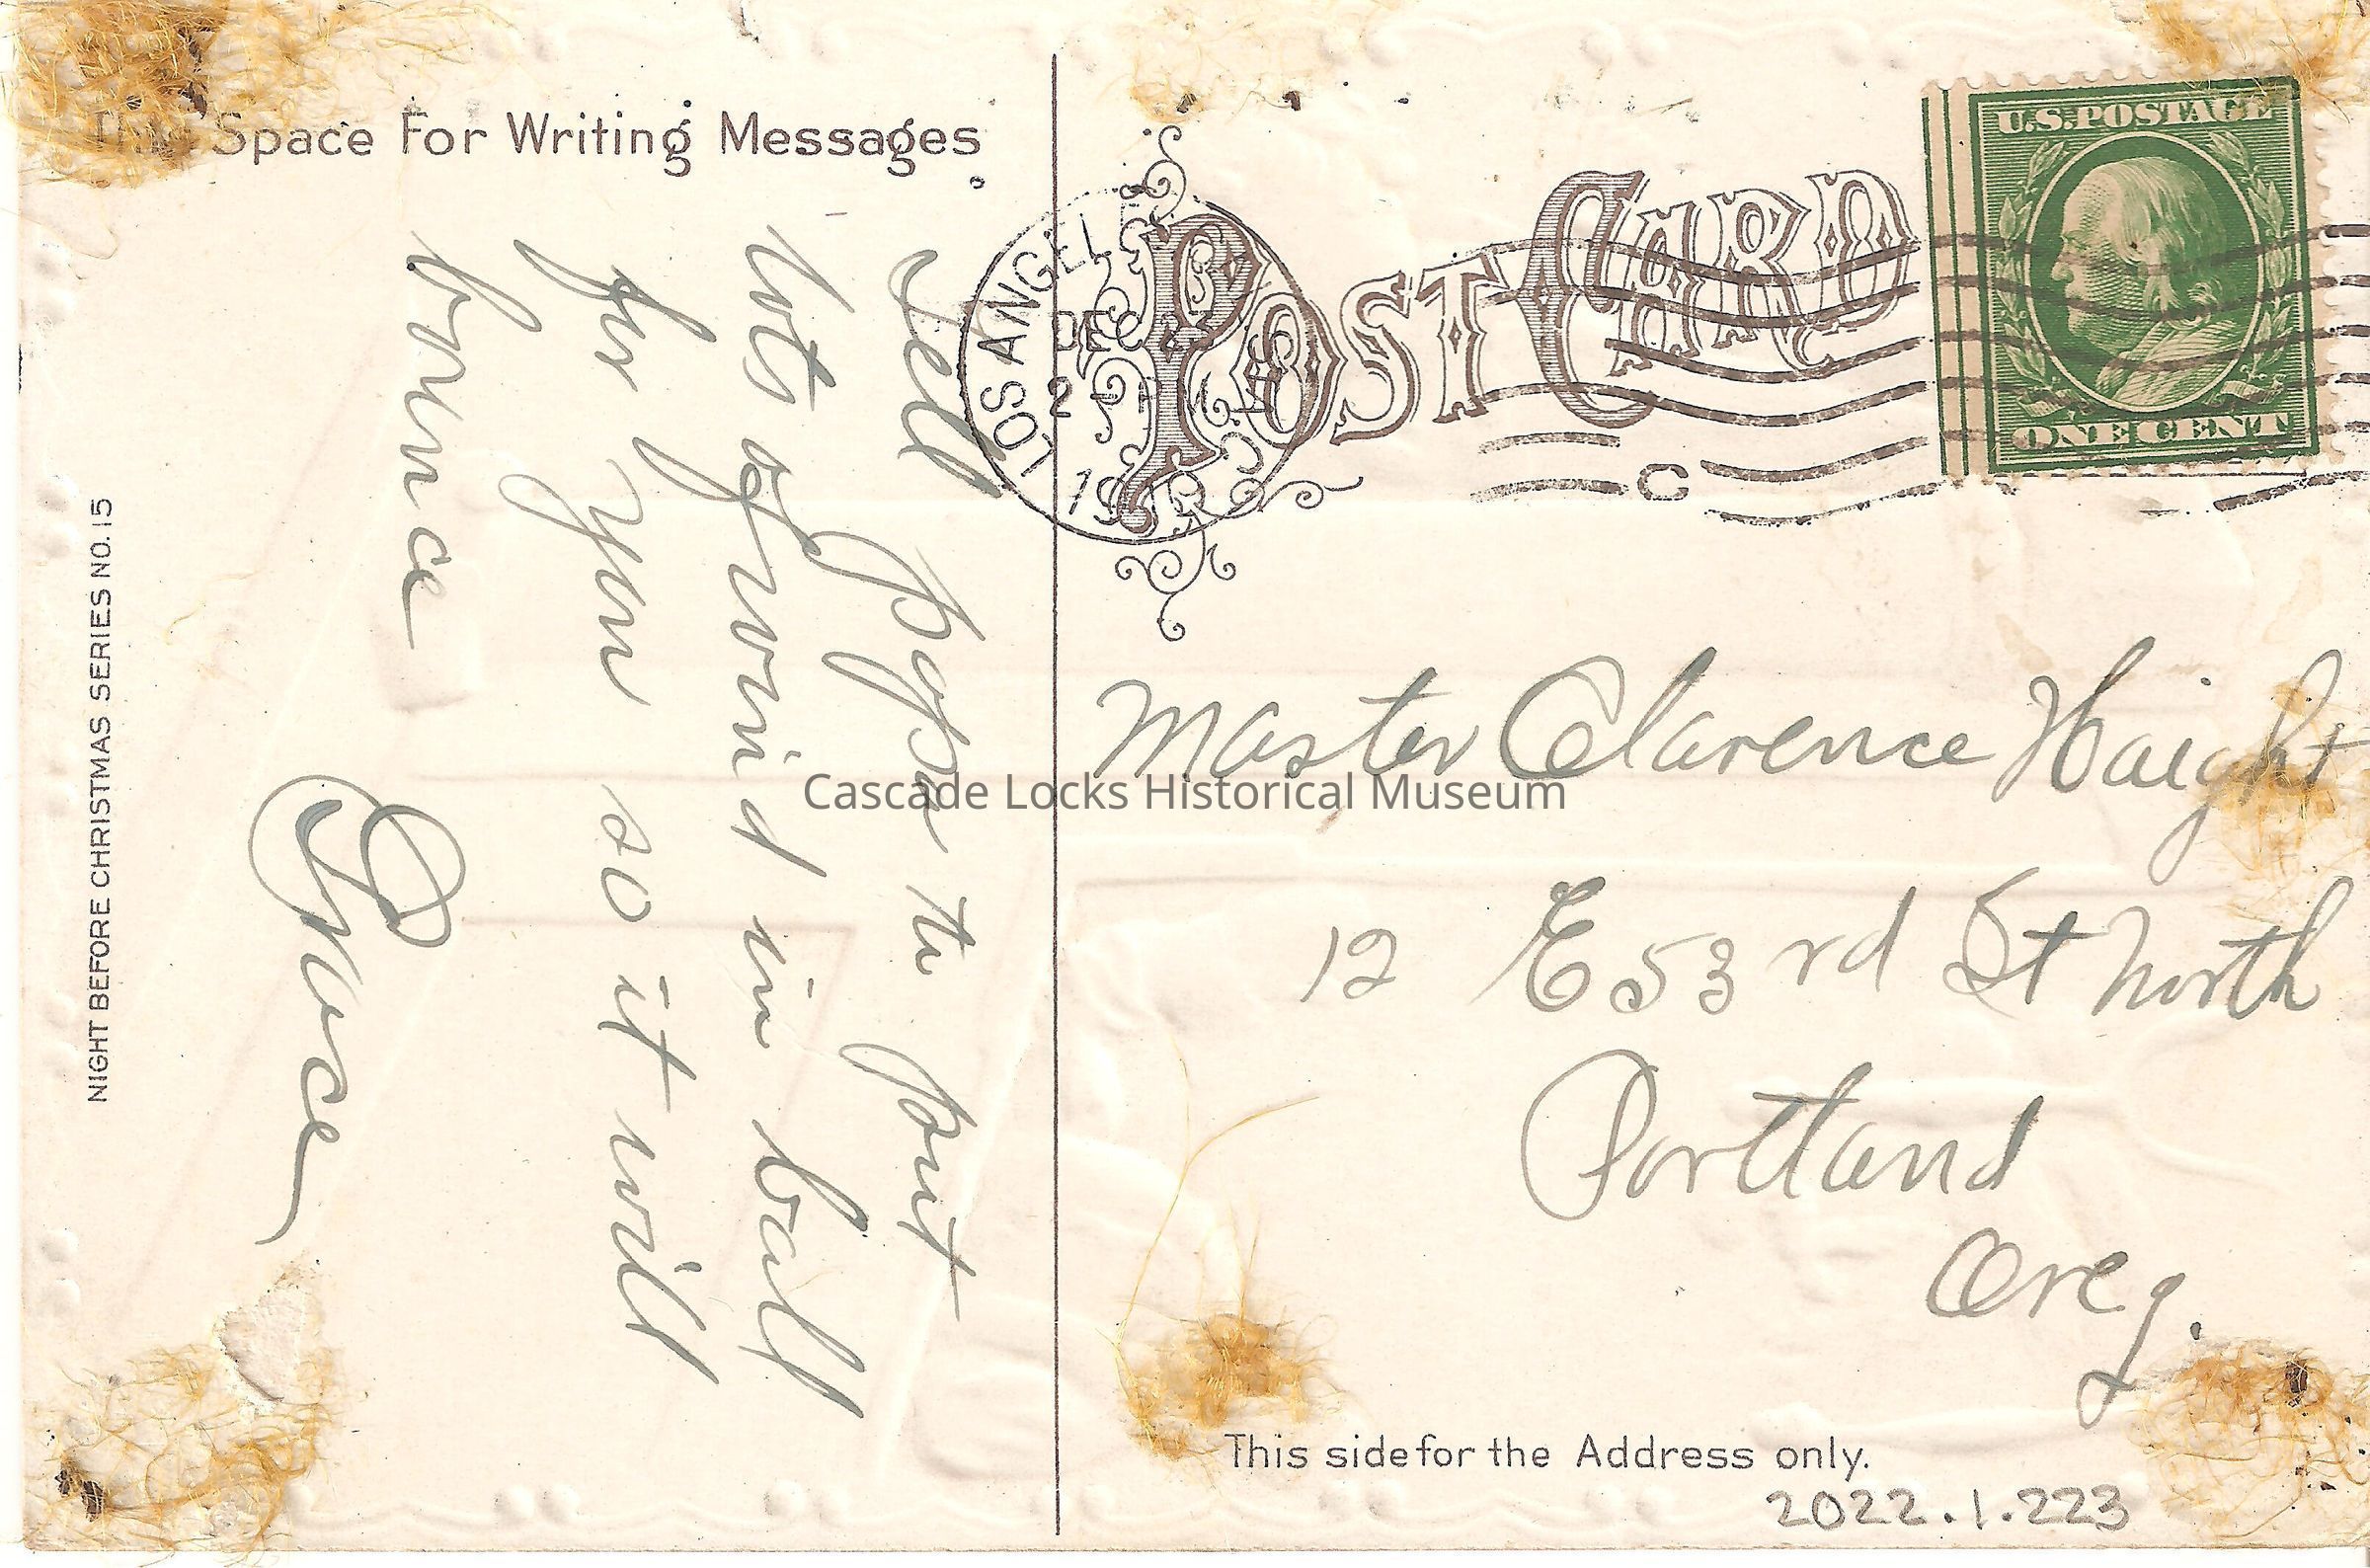 This Space For Writing Messages
Tell Papa to put
lots of wind in ball
for you so it will
bounce
Grace
NIGHT BEFORE CHRISTMAS SERIES NO. 15
POST CARD
LOS ANGELE
DEC
2
19
C
U.S. POSTAGE
ONE CENT
Master Clarence Haight
12 E 53rd St North
Portland
Oreg.
This side for the Address only.
2022.1.223
Cascade Locks Historical Museum